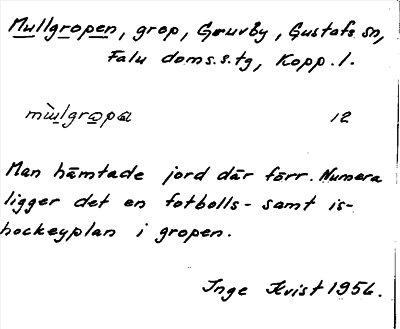 Mullgropen, grop, Gruvby, Gustafs sn,
Falu doms.s.tg, Kopp. l.
mùlgropa 12
Man hämtade jord där förr. Numera
ligger det en fotbolls- samt is-
hockeyplan i gropen.
Inge Kvist 1956.